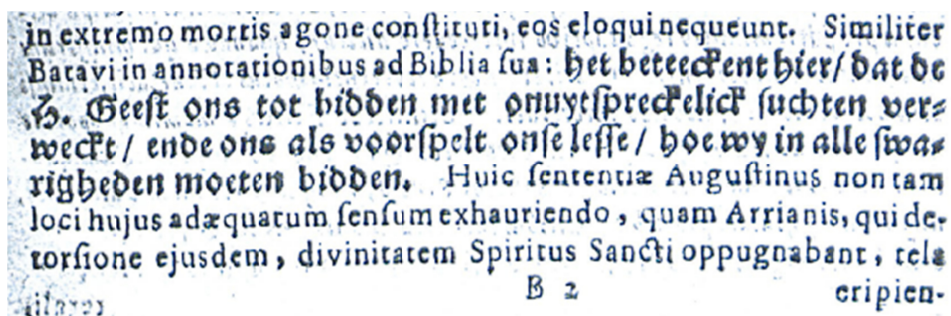 in extremo mortis agone conſtituti, eos eloqui nequeunt. Similiter
Batavi in annotationibus ad Biblia ſua: het beteeckent hier/ dat de
H. Geeſt ons tot bidden met onuytſpreckelick ſuchten ver-
weckt/ ende ons als voorſpelt onſe leſſe/ hoe wy in alle ſwa-
righeden moeten bidden. Huic ſententiæ Auguſtinus non tam
loci hujus adæquatum ſenſum exhauriendo, quam Arrianis, qui de-
torſione ejusdem, divinitatem Spiritus Sancti oppugnabant, tela
B 2 eripien-